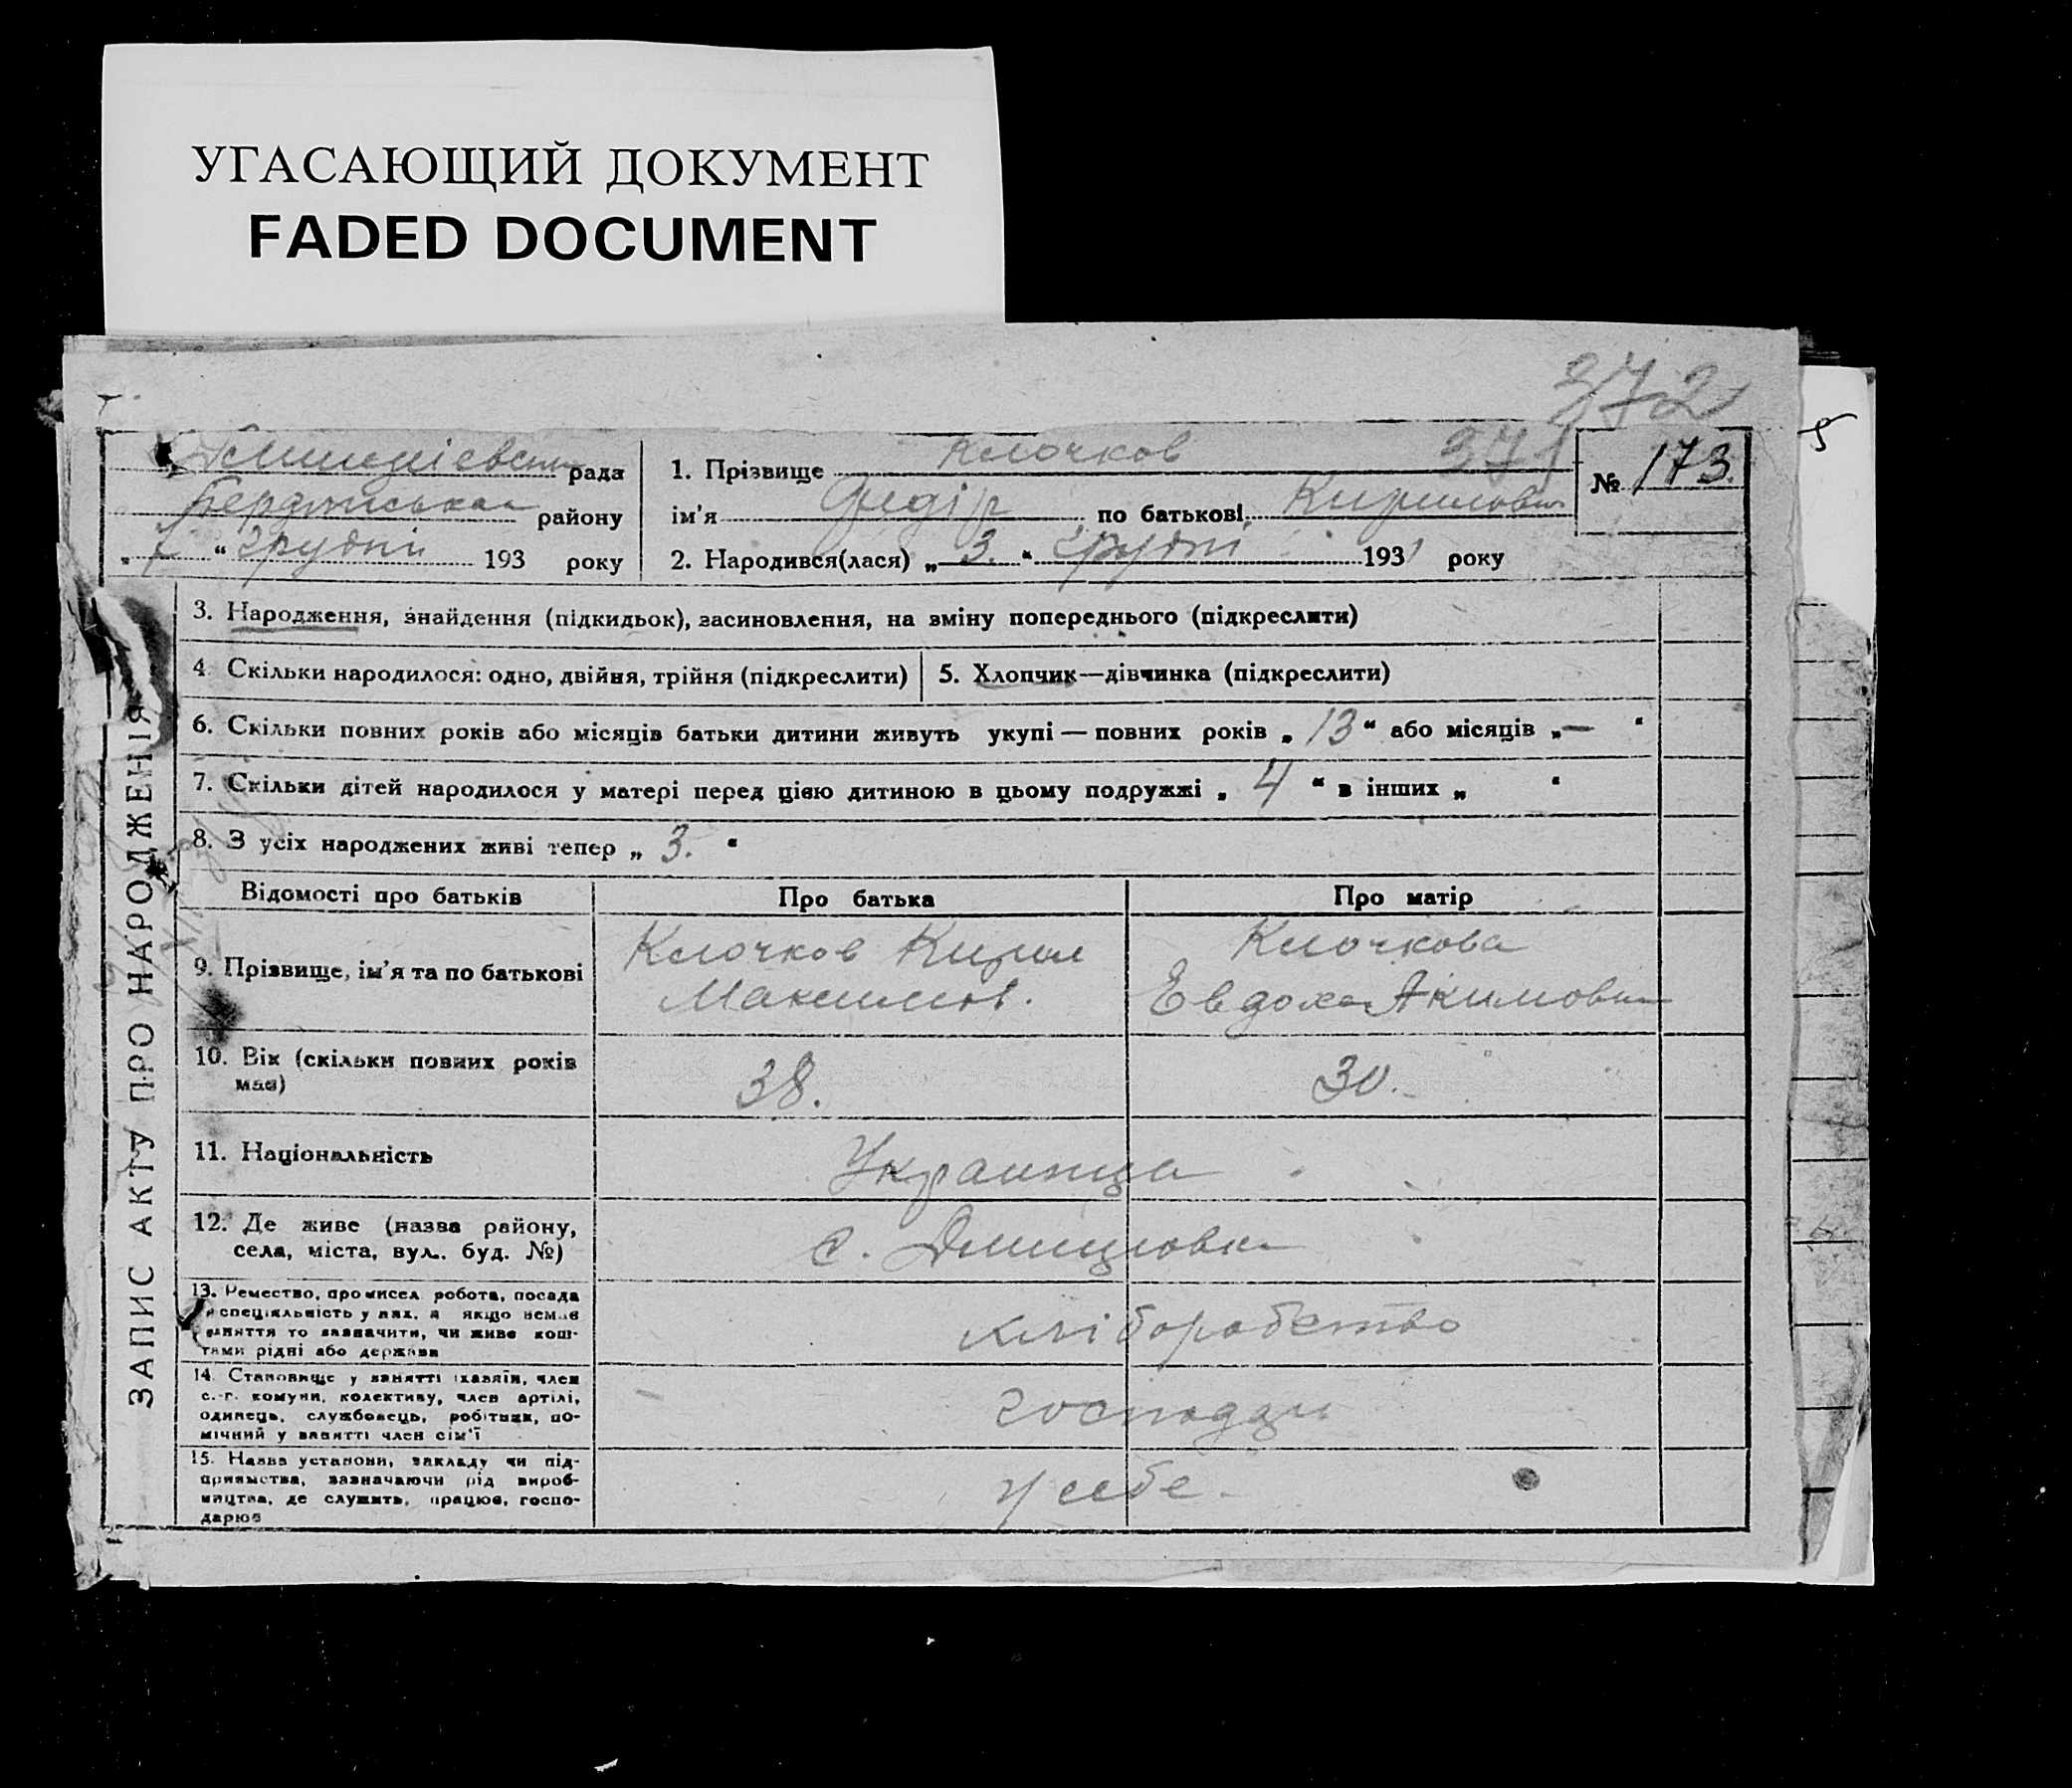 УГАСАЮЩИЙ ДОКУМЕНТ
FADED DOCUMENT
372
371
рада
району
„ 7 “ грудня 193 року
1. Прізвище Клочков
ім'я Федір по батькові Кирилович
№ 173.
2. Народився(лася) „ 3. “ грудня 1931 року
ЗАПИС АКТУ ПРО НАРОДЖЕННЯ
3. Народження, знайдення (підкидьок), засиновлення, на зміну попереднього (підкреслити)
4. Скільки народилося: одно, двійня, трійня (підкреслити)
5. Хлопчик—дівчинка (підкреслити)
6. Скільки повних років або місяців батьки дитини живуть укупі — повних років „ 13 “ або місяців „ — “
7. Скільки дітей народилося у матері перед цією дитиною в цьому подружжі „ 4 “ в інших „ “
8. З усіх народжених живі тепер „ 3. “
Відомості про батьків Про батька Про матір
9. Прізвище, ім'я та по батькові
Клочков Кирил
Максимов.
Клочкова
Евдоха Акимовна
10. Вік (скільки повних років
має)
38.
30.
11. Національність
Украинци
12. Де живе (назва району,
села, міста, вул. буд. №)
с.
13. Ремество, промисел робота, посада
й спеціяльність у них, а якщо немає
заняття то зазначити, чи живе кош-
тами рідні або держави
хліборобство
14. Становище у занятті хазяїн, член
с.-г. комуни, колективу, член артілі,
одинець, службовець, робітник, по-
мічний у занятті член сім'ї
господар
15. Назва установи, закладу чи під-
приємства, зазначаючи рід вироб-
ництва, де служить, працює, госпо-
дарює
у себе.